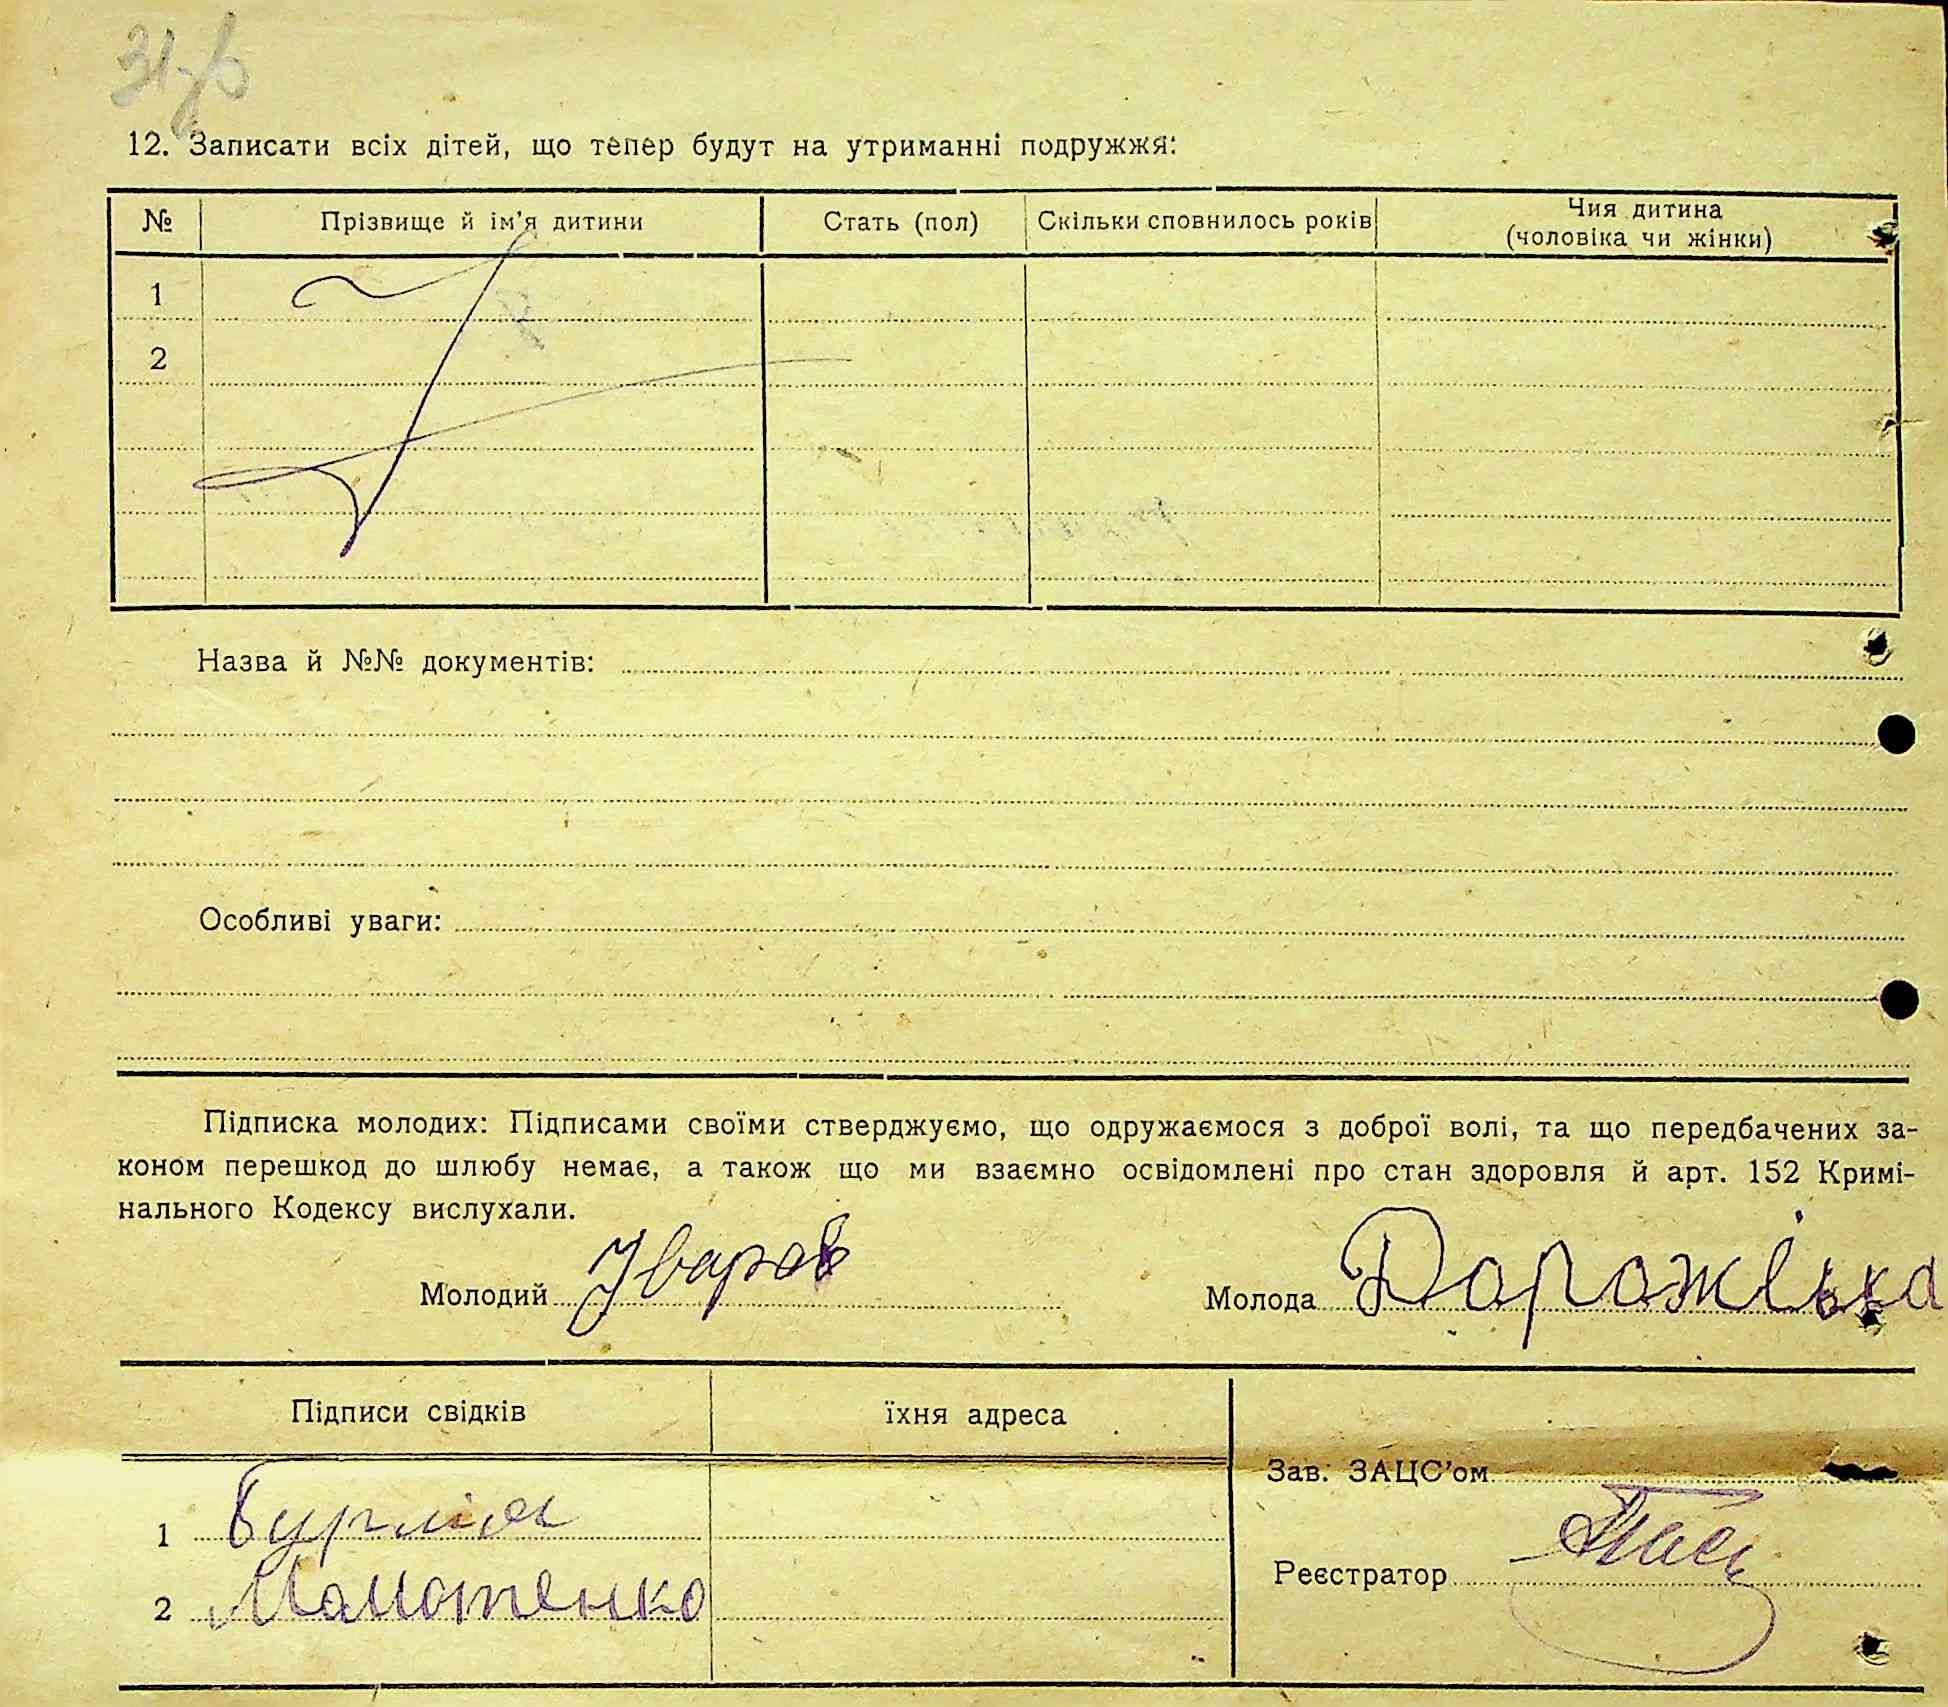 12. Записати всіх дітей, що тепер будут на утриманні подружжя:
№ Прізвище й ім'я дитини Стать (пол) Скільки сповнилось років Чия дитина
(чоловіка чи жінки)
1
2
Назва й №№ документів:
Особливі уваги:
Підписка молодих: Підписами своїми стверджуємо, що одружаємося з доброї волі, та що передбачених за-
коном перешкод до шлюбу немає, а також що ми взаємно освідомлені про стан здоровля й арт. 152 Кримі-
нального Кодексу вислухали.
Молодий Уваров Молода Дорожівка
Підписи свідків їхня адреса
Зав. ЗАЦС'ом
1
Реєстратор
2